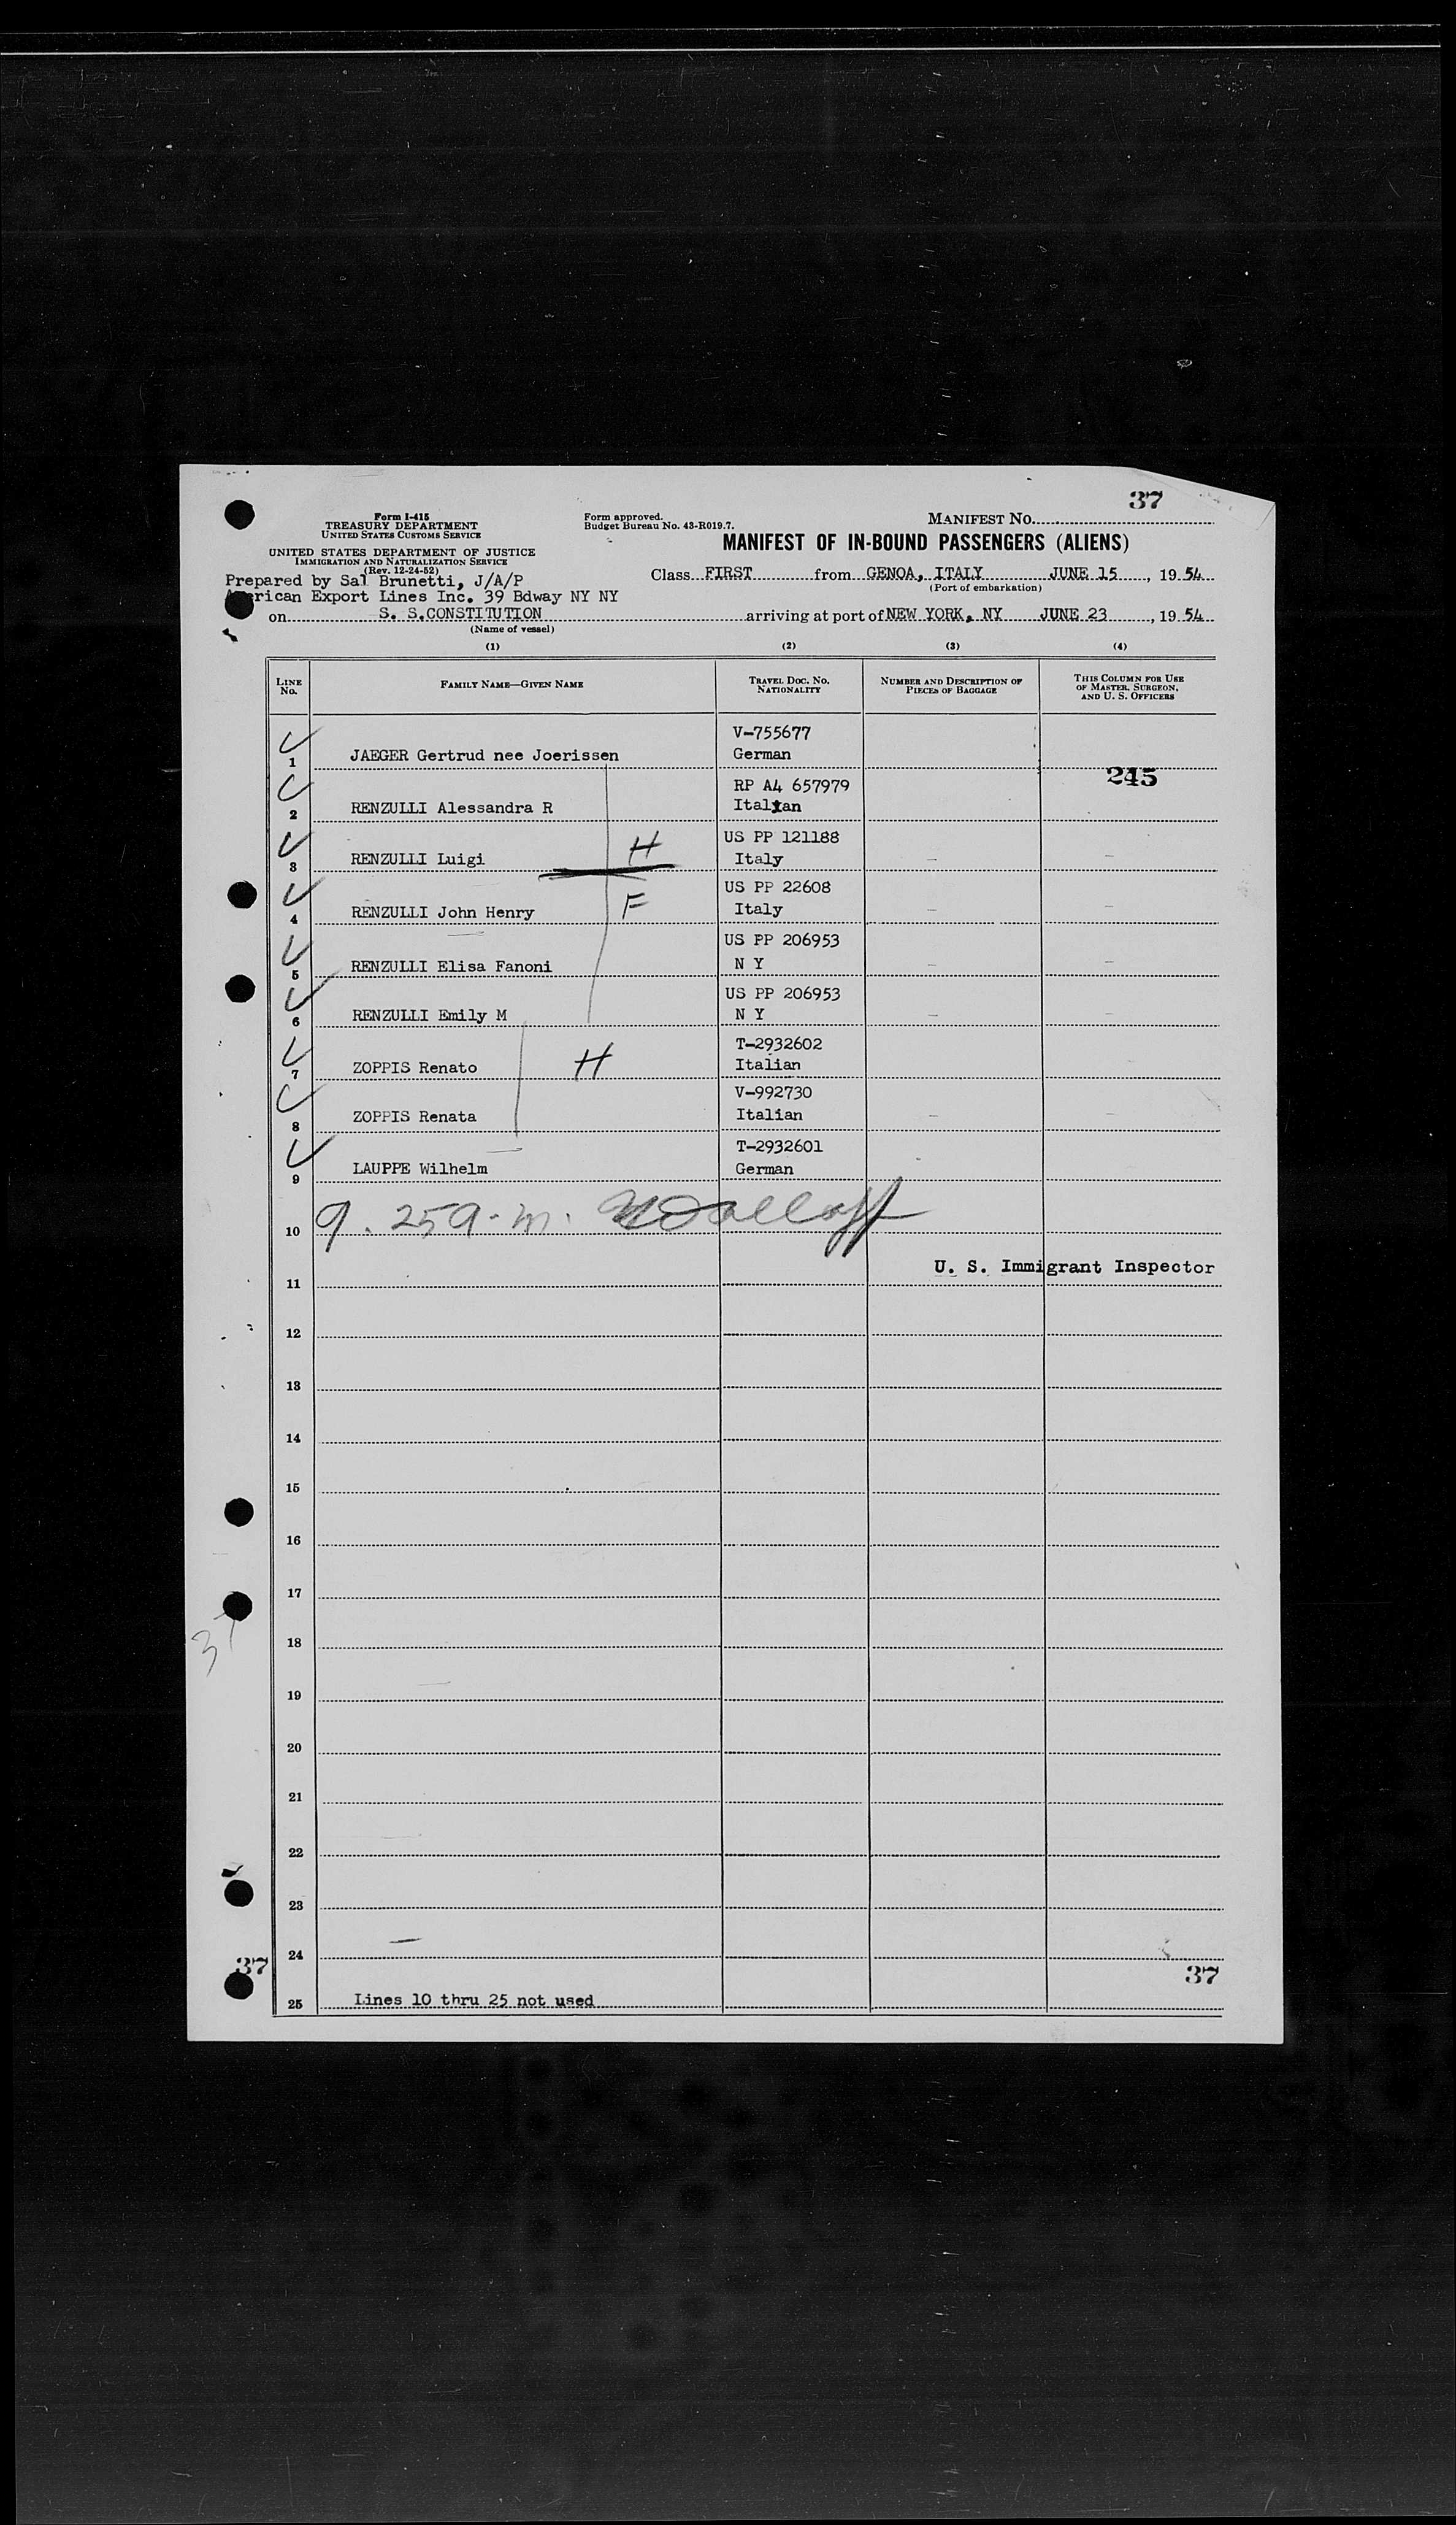 37
Form I-415
TREASURY DEPARTMENT
UNITED STATES CUSTOMS SERVICE
Form approved.
Budget Bureau No. 43-R019.7.
MANIFEST NO.
UNITED STATES DEPARTMENT OF JUSTICE
IMMIGRATION AND NATURALIZATION SERVICE
(Rev. 12-24-52)
MANIFEST OF IN-BOUND PASSENGERS (ALIENS)
Prepared by Sal Brunetti, J/A/P
American Export Lines Inc. 39 Bdway NY NY
Class FIRST from GENOA, ITALY JUNE 15, 1954
(Port of embarkation)
on S. S. CONSTITUTION arriving at port of NEW YORK, NY JUNE 23, 1954
(Name of vessel)
(1) (2) (3) (4)
LINE NO. FAMILY NAME—GIVEN NAME TRAVEL DOC. NO. NATIONALITY NUMBER AND DESCRIPTION OF PIECES OF BAGGAGE THIS COLUMN FOR USE OF MASTER, SURGEON, AND U. S. OFFICERS
1 JAEGER Gertrud nee Joerissen V-755677 German
245
2 RENZULLI Alessandra R RP A4 657979 Italian
3 RENZULLI Luigi H US PP 121188 Italy
4 RENZULLI John Henry F US PP 22608 Italy
5 RENZULLI Elisa Fanoni US PP 206953 N Y
6 RENZULLI Emily M US PP 206953 N Y
7 ZOPPIS Renato H T-2932602 Italian
8 ZOPPIS Renata V-992730 Italian
9 LAUPPE Wilhelm T-2932601 German
10 9. 259. m.
U. S. Immigrant Inspector
11
12
13
14
15
16
17
18
37
19
20
21
22
23
24
37
37
25 Lines 10 thru 25 not used